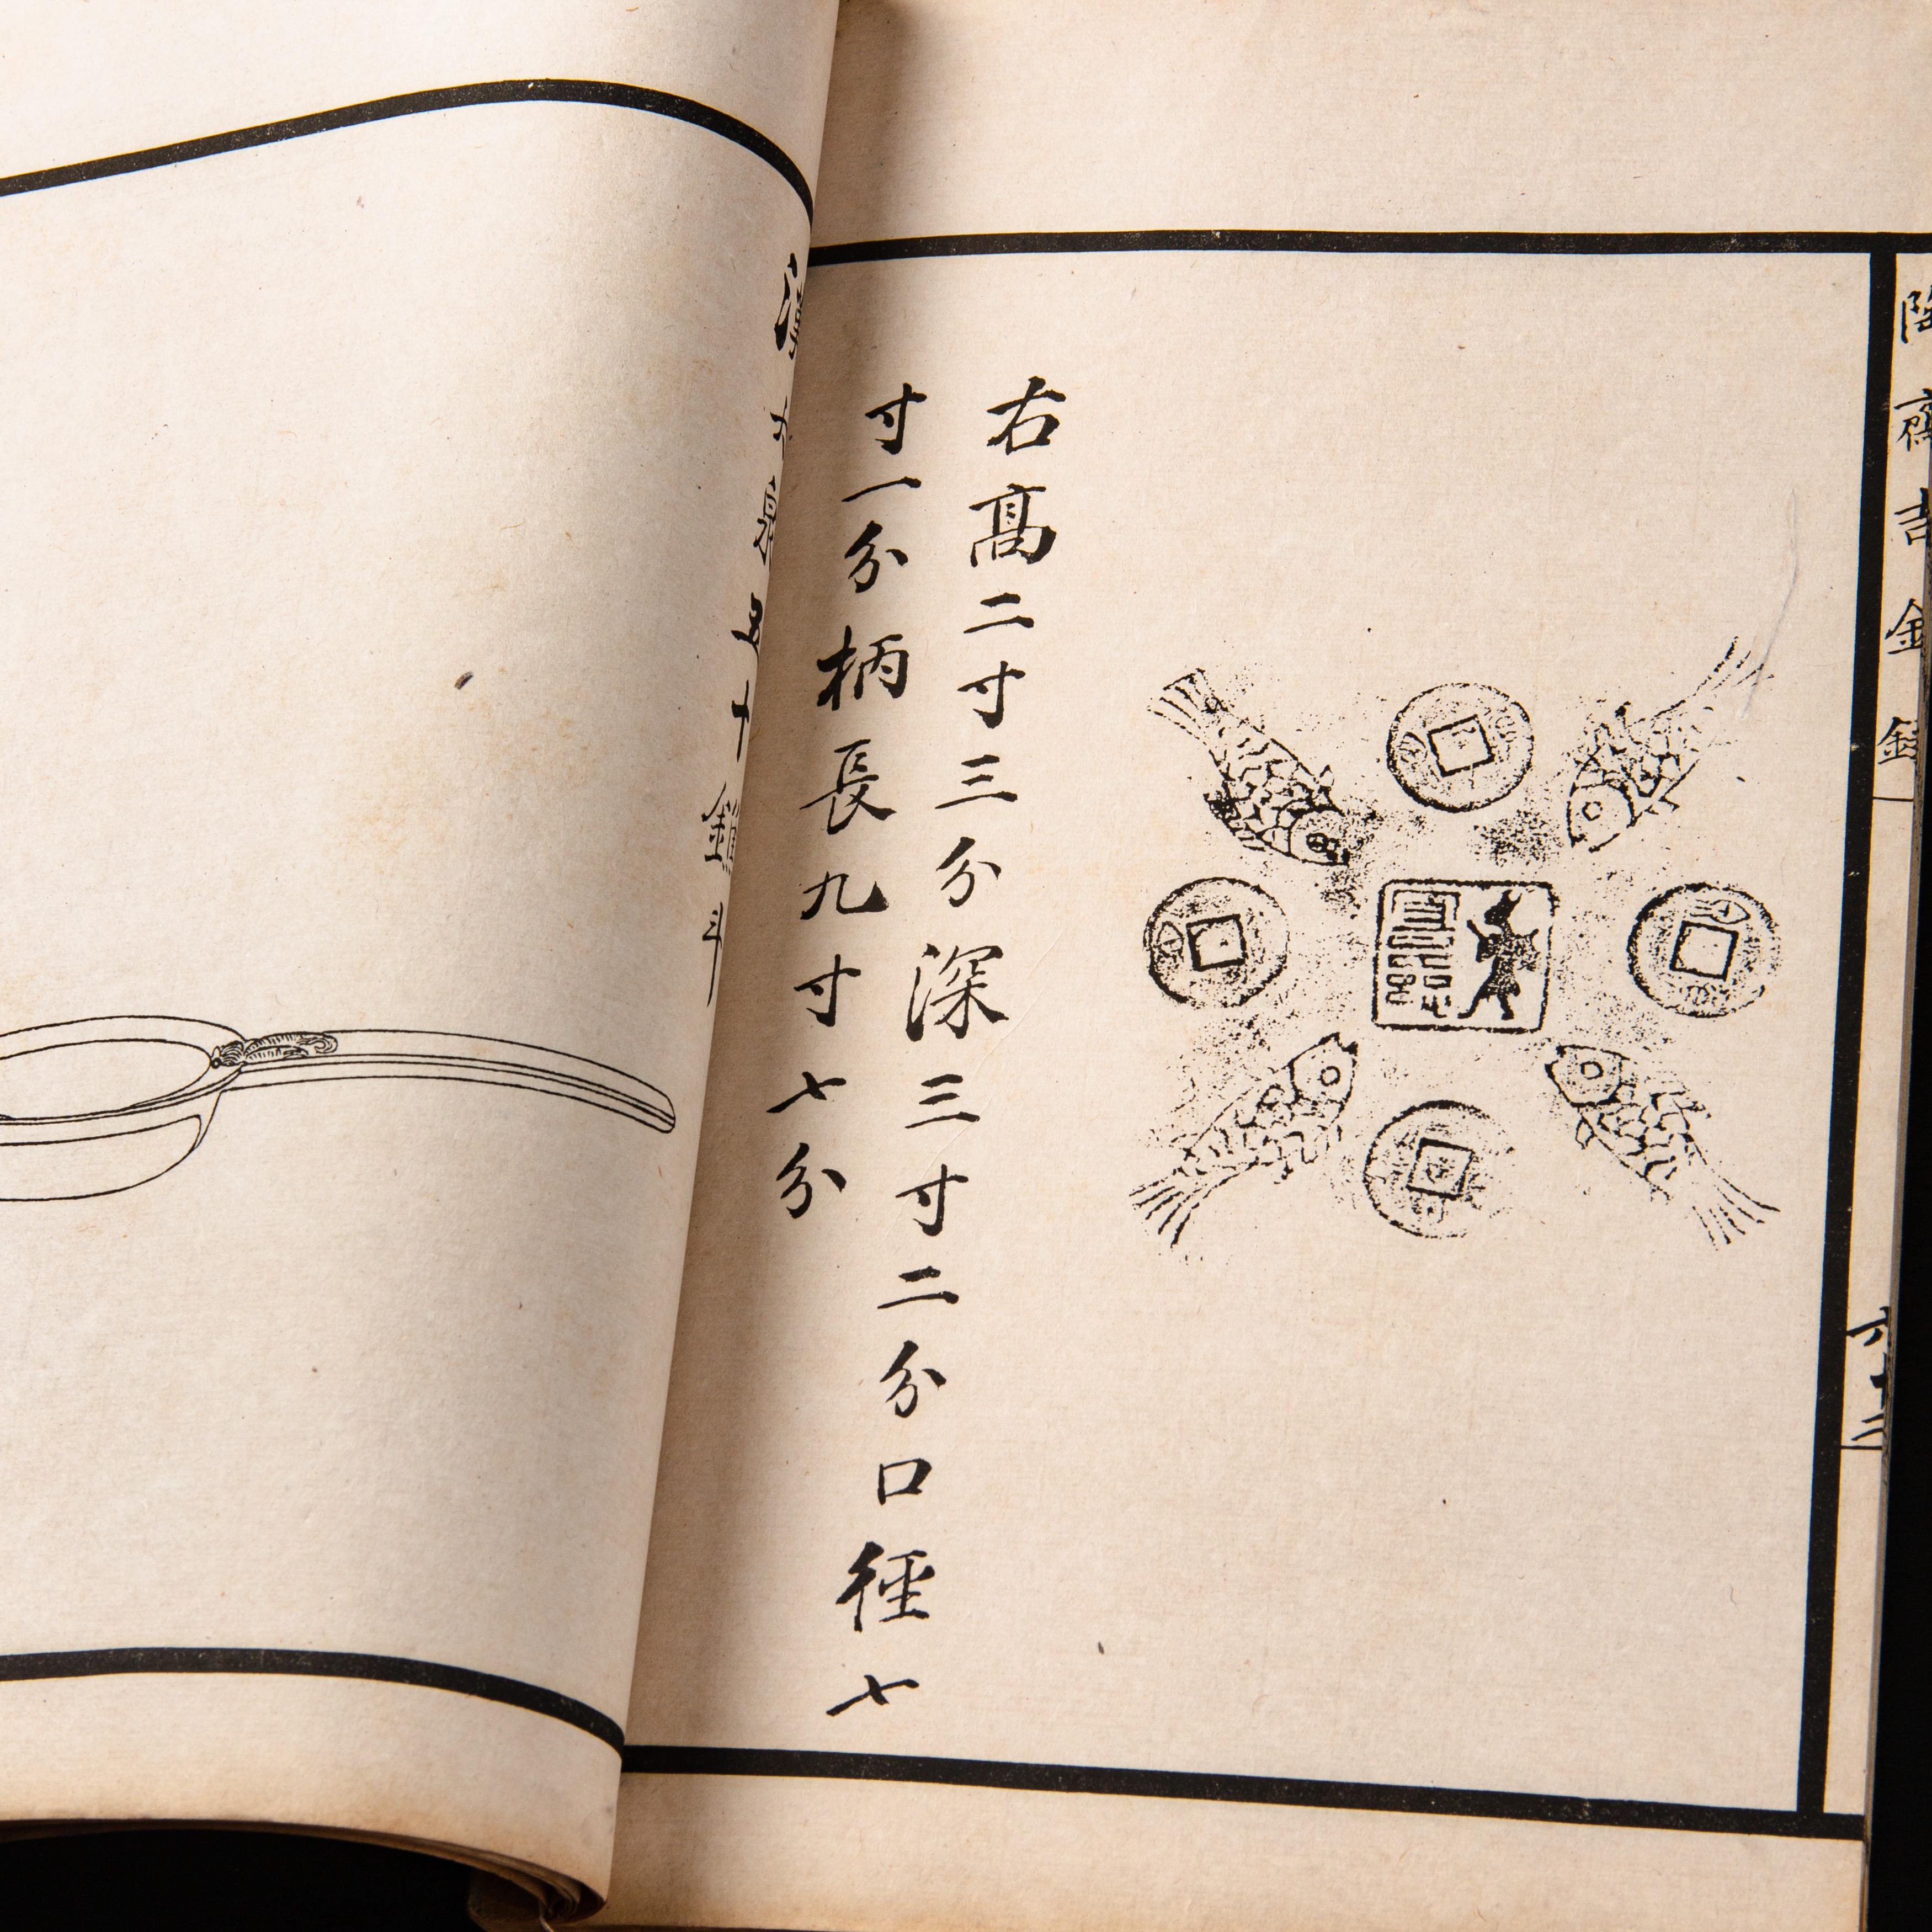 陶齋吉金錄
六十
右髙二寸三分深三寸二分口徑七
寸一分柄長九寸七分
漢 鐎斗